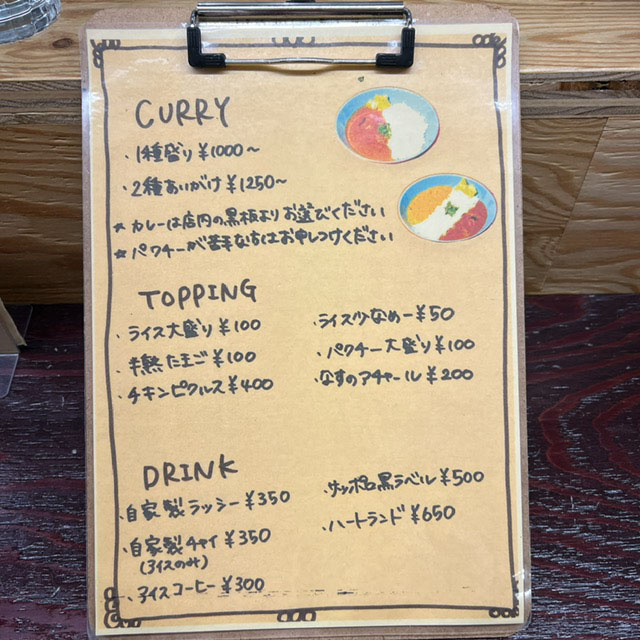 CURRY
・1種盛り¥1000〜
・2種あいがけ¥1250〜
★カレーは店内の黒板よりお選びください
★パクチーが苦手な方はお申しつけください
TOPPING
・ライス大盛り¥100
・半熟たまご¥100
・チキンピクルス¥400
・ライス少なめー¥50
・パクチー大盛り¥100
・なすのアチャール¥200
DRINK
・自家製ラッシー¥350
・自家製チャイ¥350
(アイスのみ)
・アイスコーヒー¥300
・サッポロ黒ラベル¥500
・ハートランド¥650